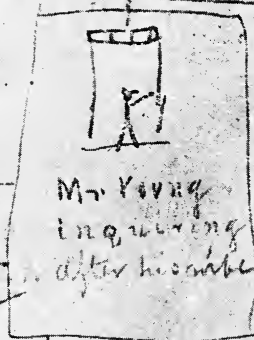 Mr. Young
inquiring
after his wife